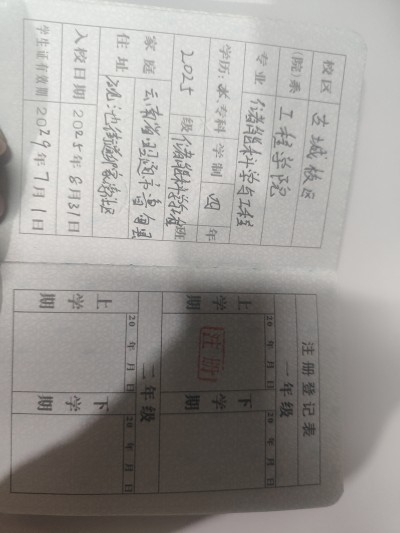 校区 古城校区
(院)系 工程学院
专业 储能科学与工程
学历:本、专科 学制 四 年
2025 级 储能科学与工程 班
家庭 云南省昭通市
住址
入校日期 2025年8月31日
学生证有效期 2029年7月1日
注册登记表
一年级
上学期 下学期
20 年 月 日 20 年 月 日
注册
二年级
上学期 下学期
20 年 月 日 20 年 月 日